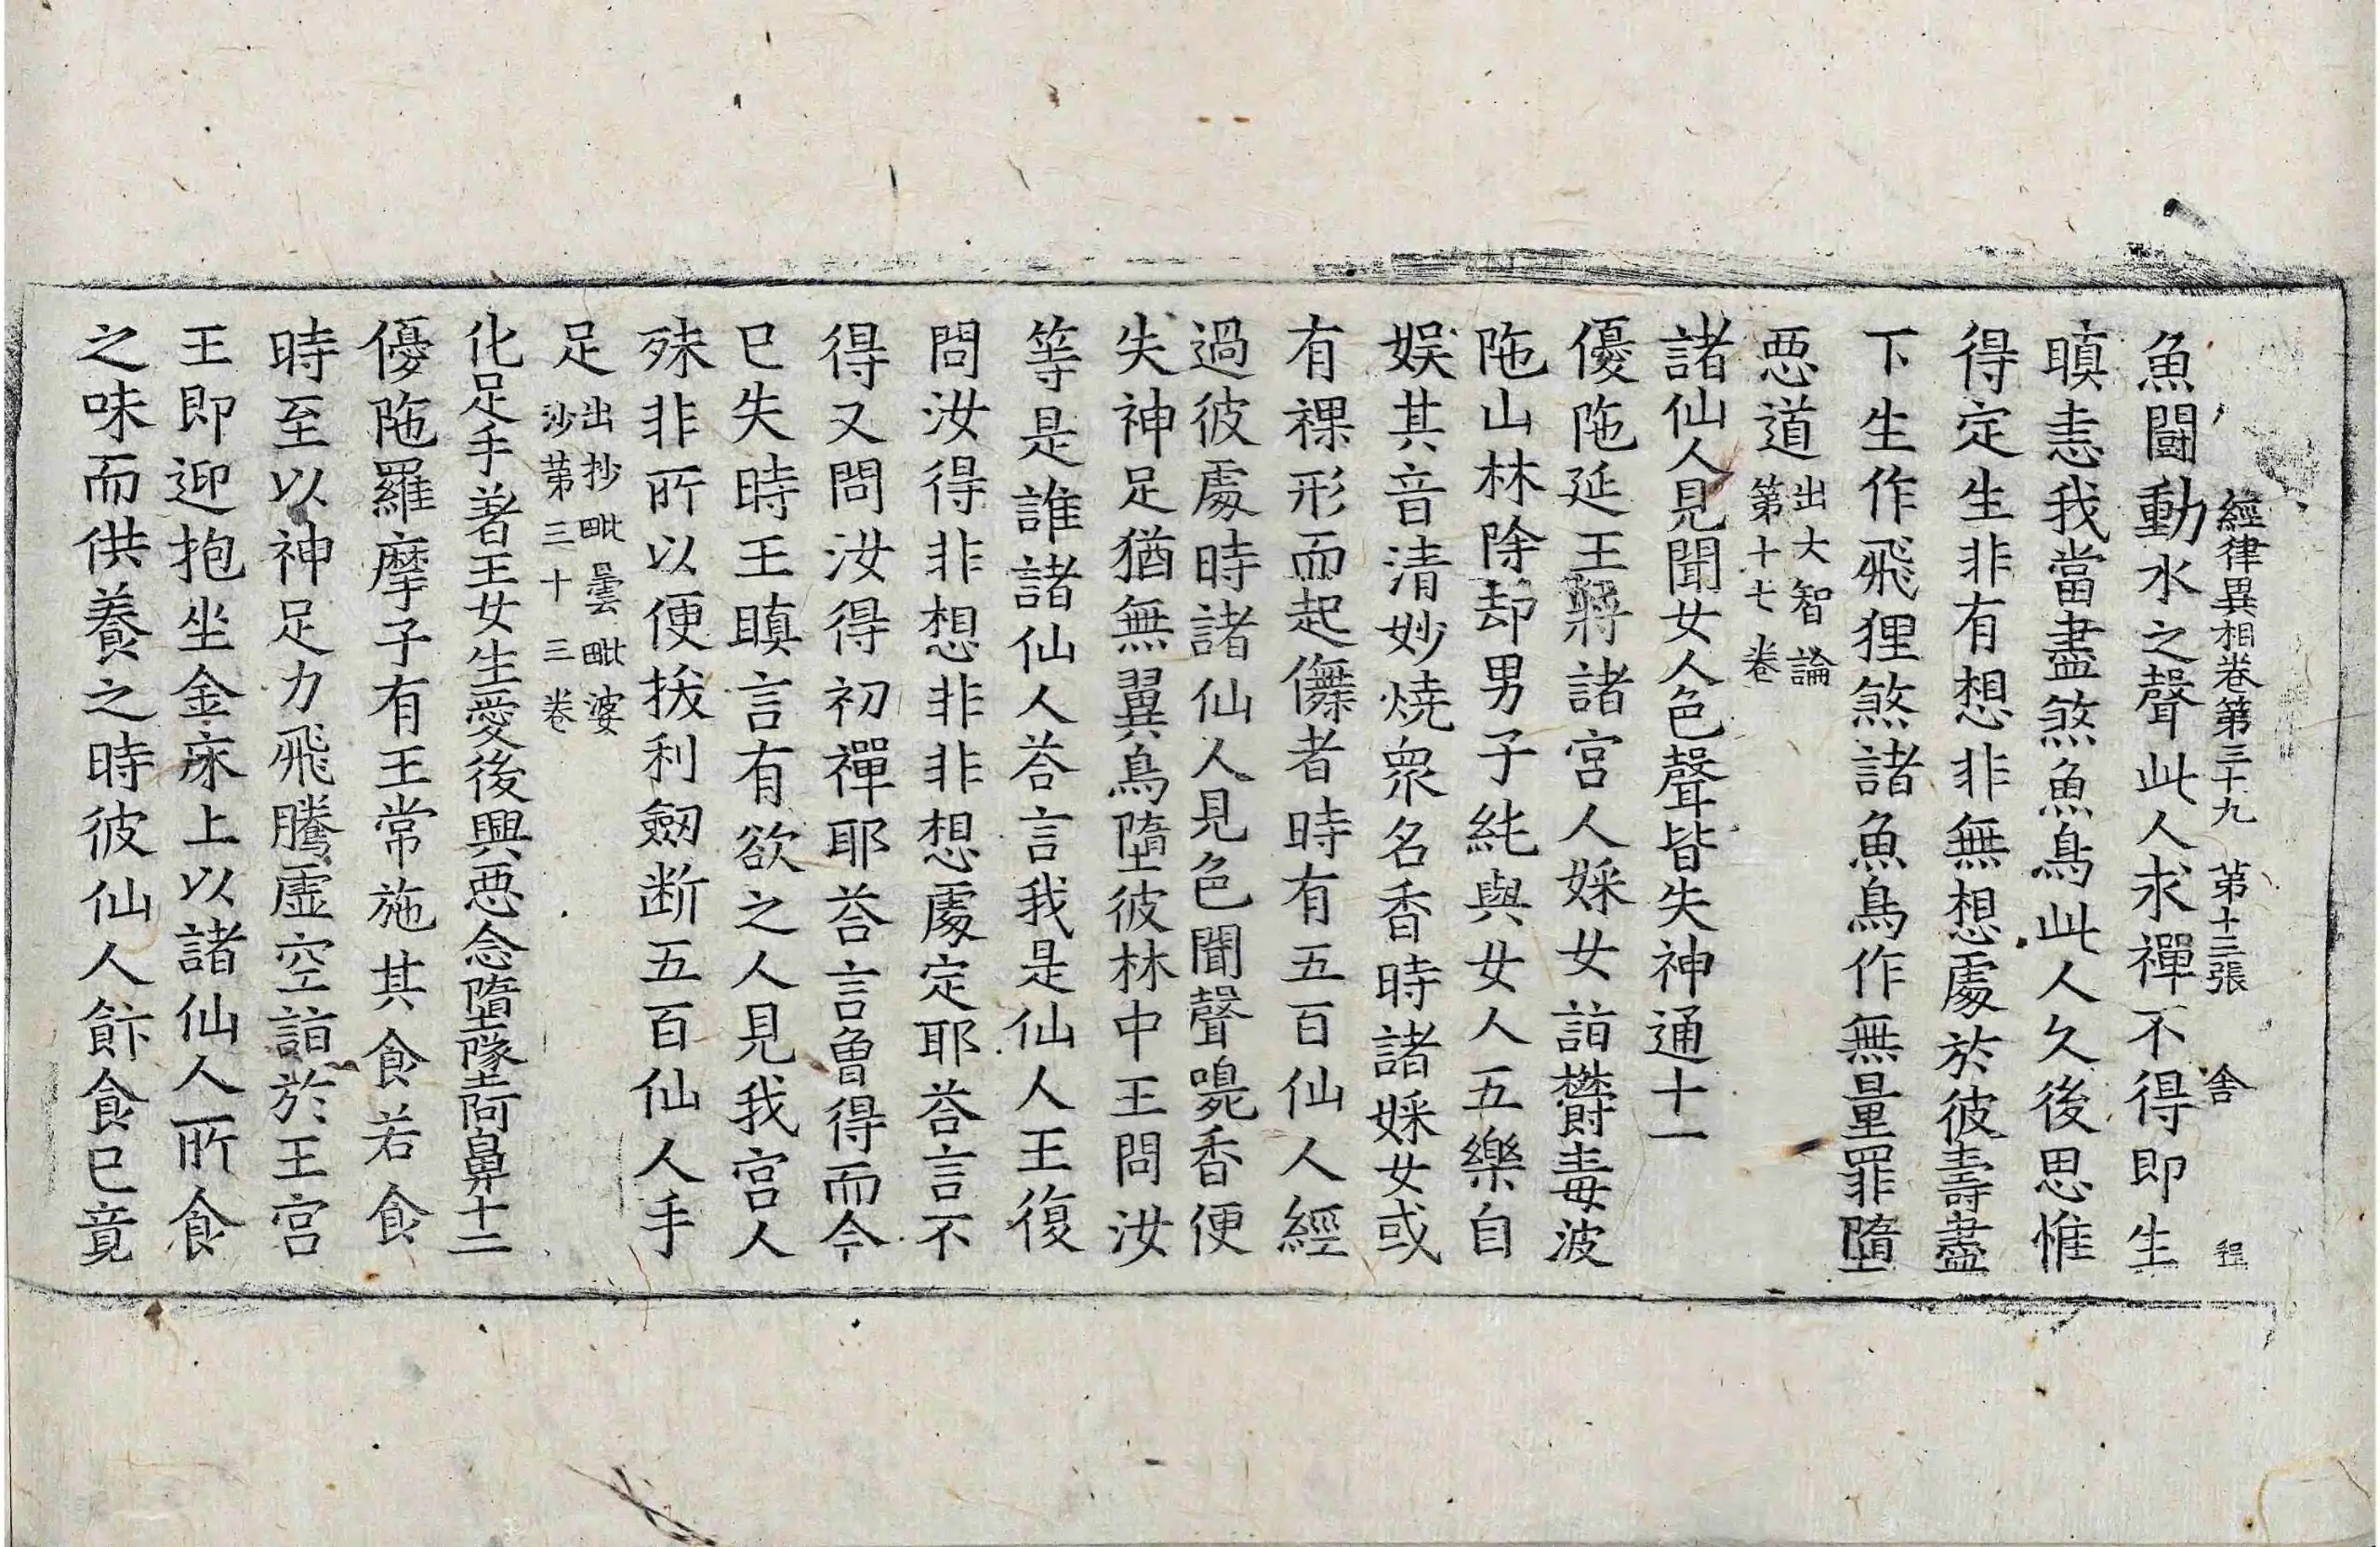 經律異相卷第三十九 第十三張 舍 程
魚鬪動水之聲此人求禪不得即生
瞋恚我當盡煞魚鳥此人久後思惟
得定生非有想非無想處於彼壽盡
下生作飛狸煞諸魚鳥作無量罪墮
惡道 出大智論第十七卷
諸仙人見聞女人色聲皆失神通十一
優陁延王將諸宮人婇女詣欝毒波
陁山林除却男子純與女人五樂自
娛其音清妙燒衆名香時諸婇女或
有裸形而起儛者時有五百仙人經
過彼處時諸仙人見色聞聲嗅香便
失神足猶無翼鳥墮彼林中王問汝
等是誰諸仙人荅言我是仙人王復
問汝得非想非非想處定耶荅言不
得又問汝得初禪耶荅言曾得而今
已失時王瞋言有欲之人見我宮人
殊非所以便拔利劒断五百仙人手
足 出抄毗曇毗婆沙第三十三卷
化足手著王女生愛後興惡念墮墜阿鼻十二
優陁羅摩子有王常施其食若食
時至以神足力飛騰虛空詣於王宮
王即迎抱坐金床上以諸仙人所食
之味而供養之時彼仙人飰食已竟